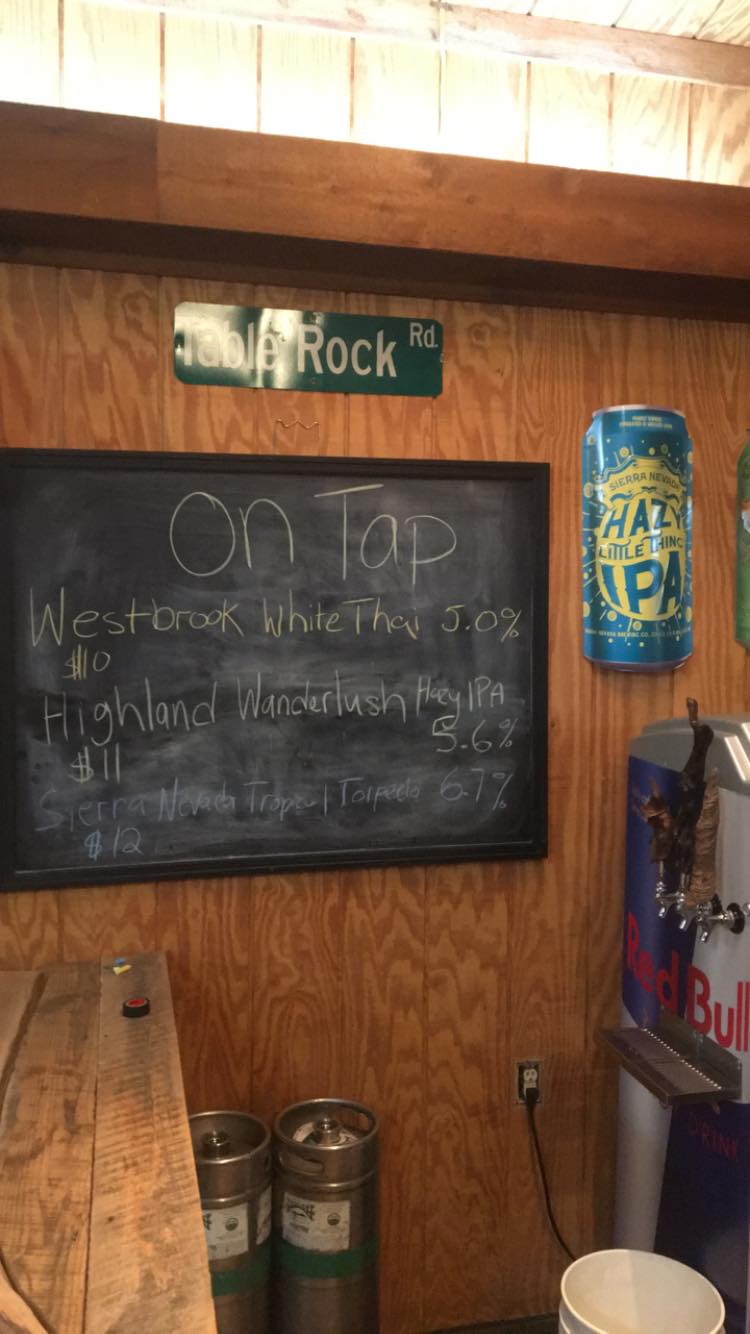 Table Rock Rd.
On Tap
Westbrook White Thai 5.0%
$10
Highland Wanderlush Hazy IPA
5.6%
$11
Sierra Nevada Tropical Torpedo 6.7%
$12
SIERRA NEVADA
HAZY
LITTLE THING
IPA
Red Bull
DRINK